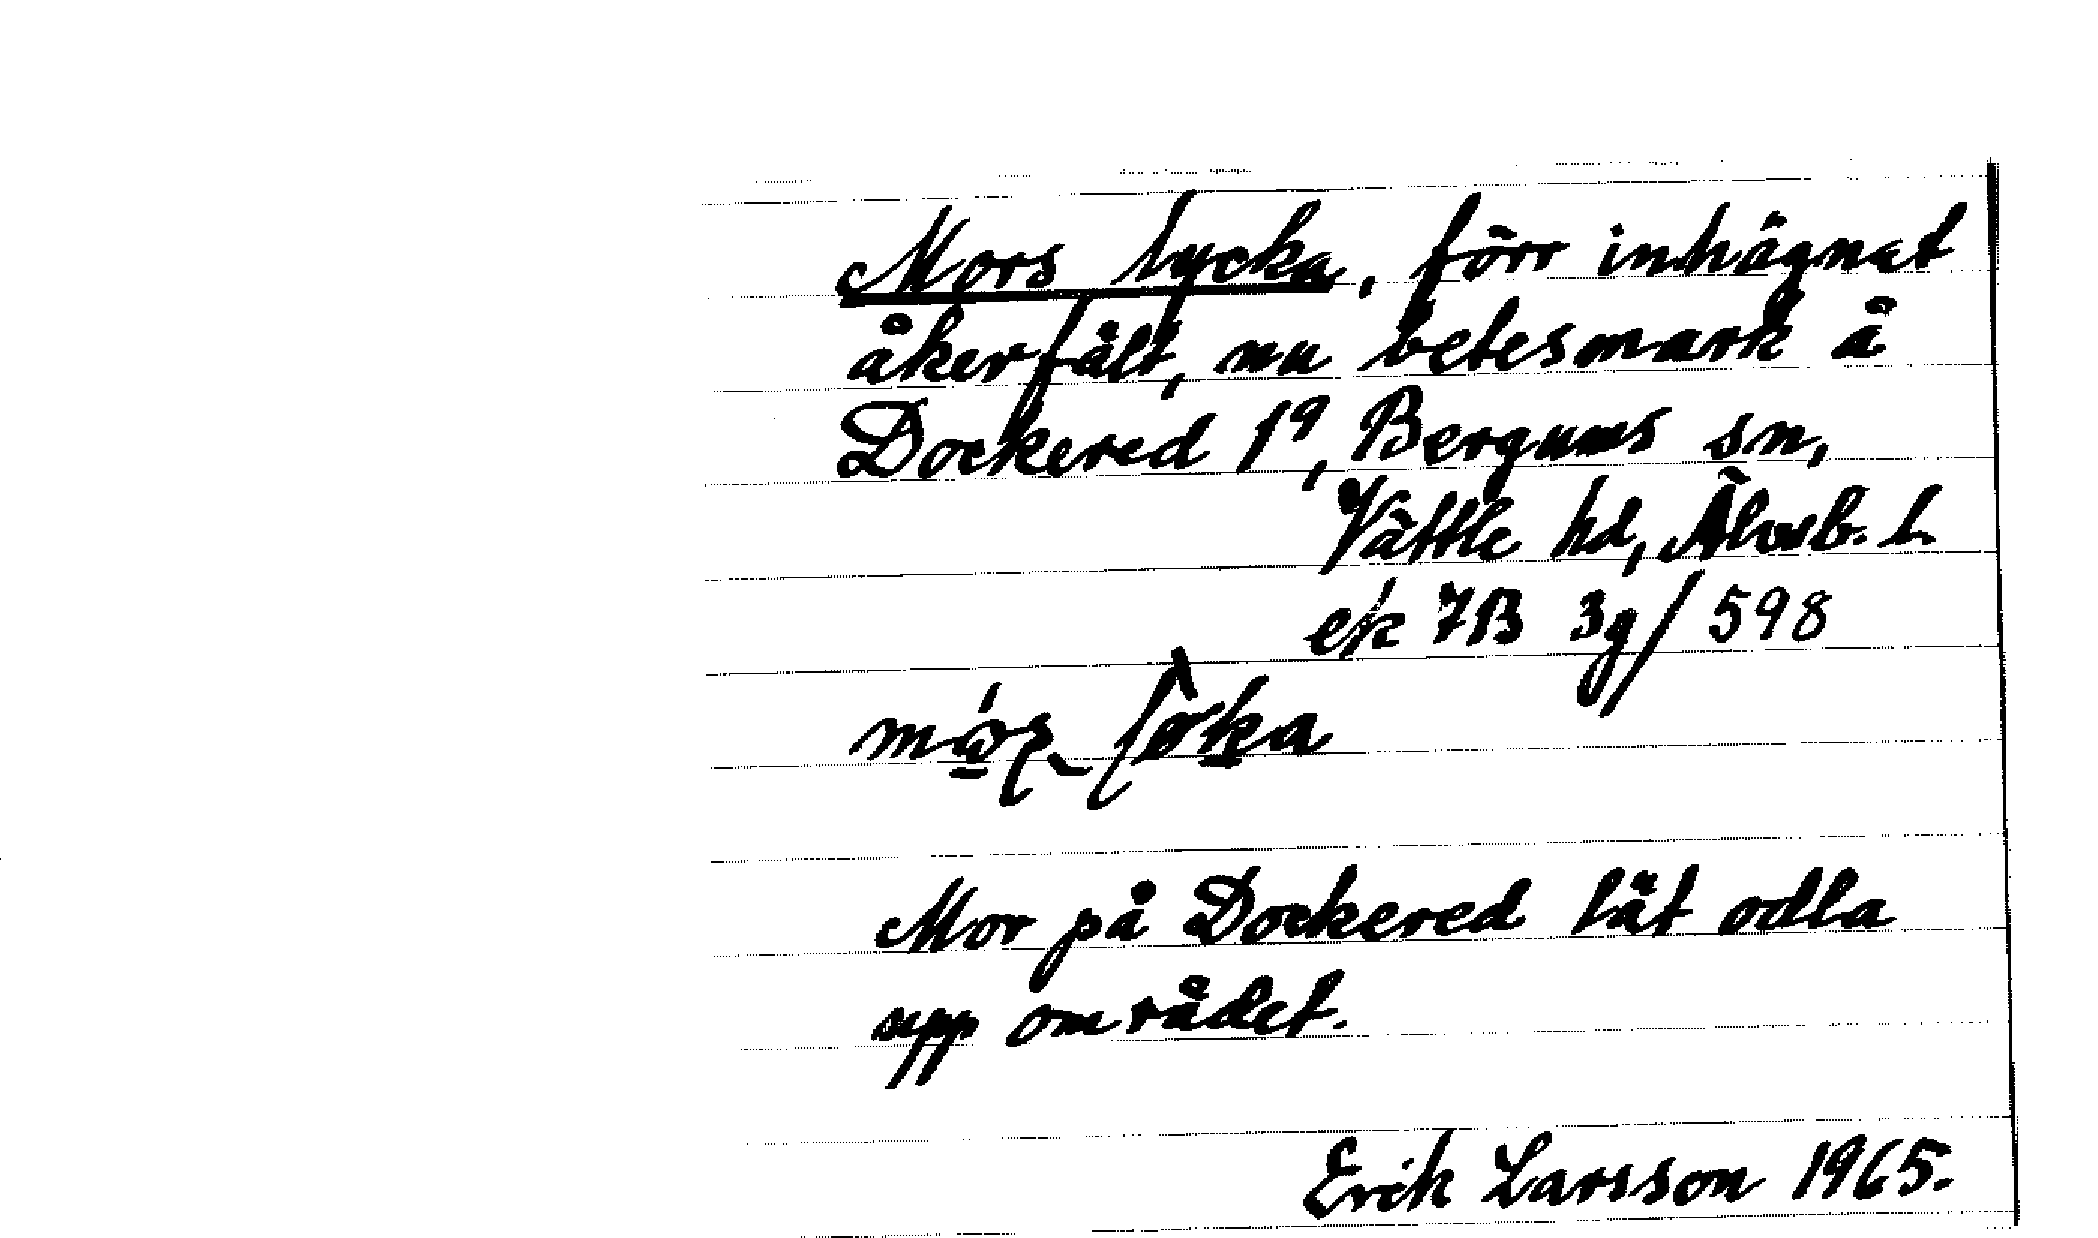 Mors lycka, förr inhägnat
åkerfält, nu betesmark å
Dockered 1⁹, Bergums sn,
Vättle hd, Älvsb. L
ek 7B 3g/598
Mor på Dockered lät odla
upp området.
Erik Larsson 1965.